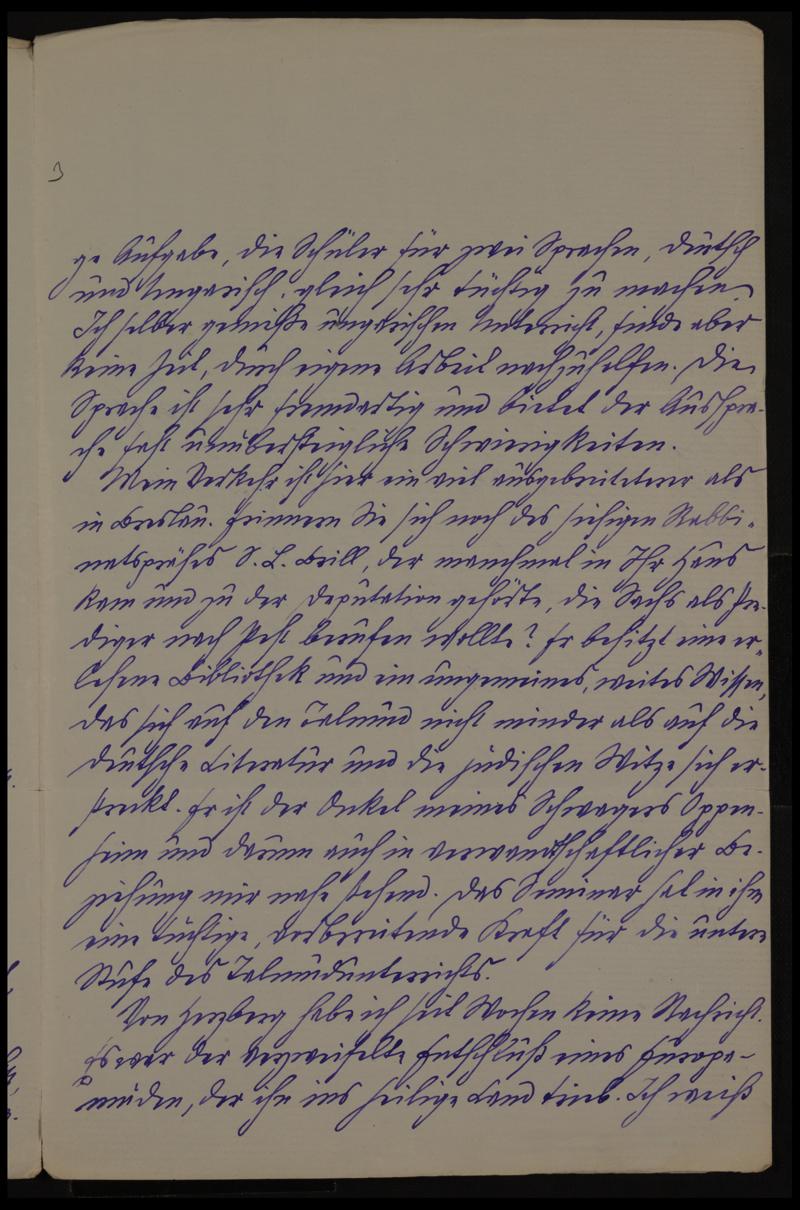 3
ge Aufgabe, die Schüler für zwei Sprachen, deutsch
und Ungarisch, gleich sehr tüchtig zu machen.
Ich selber genieße ungarischen Unterricht, finde aber
keine Zeit, durch eigene Arbeit nachzuhelfen. Die
Sprache ist sehr fremdartig und bietet der Ausspra-
che fast unübersteigliche Schwierigkeiten.
Mein Verkehr ist hier ein viel ausgebreiteterer als
in Breslau. Erinnern Sie sich noch des hiesigen Rabbi-
natspräses S. L. Brill, der manchmal in Ihr Haus
kam und zu der Deputation gehörte, die Sachs als Pre-
diger nach Pest berufen wollte? Er besitzt eine er-
lesene Bibliothek und ein ungemeines, weites Wissen,
das sich auf den Talmud nicht minder als auf die
deutsche Literatur und die jüdischen Witze sich er-
streckt. Er ist der Onkel meines Schwagers Oppen-
heim und darum auch in verwandtschaftlicher Be-
ziehung mir nahe stehend. Das Seminar hat in ihm
eine tüchtige, vorbereitende Kraft für die untere
Stufe des Talmudunterrichts.
Von Herzberg habe ich seit Wochen keine Nachricht.
Es war der verzweifelte Entschluß eines Europa-
müden, der ihn ins heilige Land trieb. Ich weiß